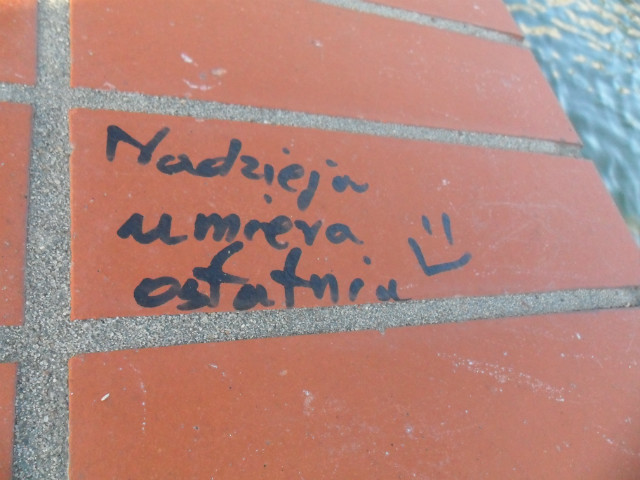 Nadzieja
umiera
ostatnia